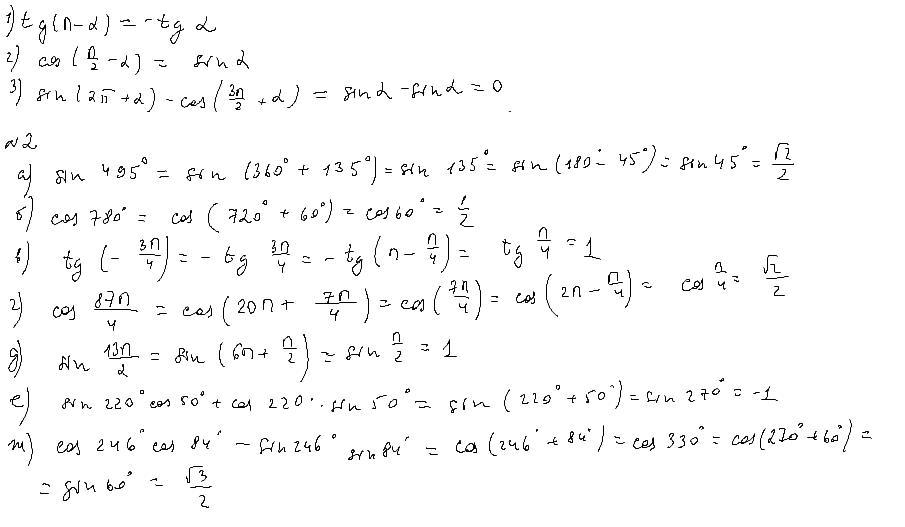 1) tg(π-α) = -tg α
2) cos(π/2 - α) = sin α
3) sin(2π+α) - cos(3π/2 + α) = sin α - sin α = 0
№2
а) sin 495° = sin (360° + 135°) = sin 135° = sin (180° - 45°) = sin 45° = √2/2
б) cos 780° = cos (720° + 60°) = cos 60° = 1/2
в) tg (- 3π/4) = - tg 3π/4 = - tg (π - π/4) = tg π/4 = 1
г) cos 87π/4 = cos (20π + 7π/4) = cos (7π/4) = cos (2π - π/4) = cos π/4 = √2/2
д) sin 13π/2 = sin (6π + π/2) = sin π/2 = 1
е) sin 220° cos 50° + cos 220° · sin 50° = sin (220° + 50°) = sin 270° = -1
ж) cos 246° cos 84° - sin 246° sin 84° = cos (246° + 84°) = cos 330° = cos(270° + 60°) =
= sin 60° = √3/2